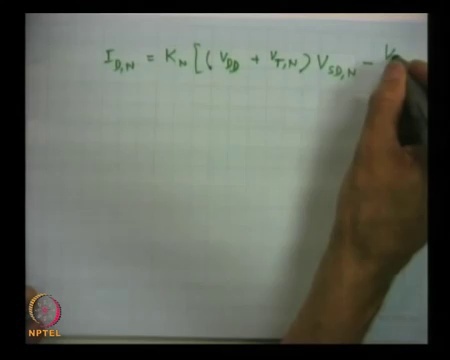 I_{D,N} = K_N [ ( V_{DD} + V_{T,N} ) V_{SD,N} - V
NPTEL